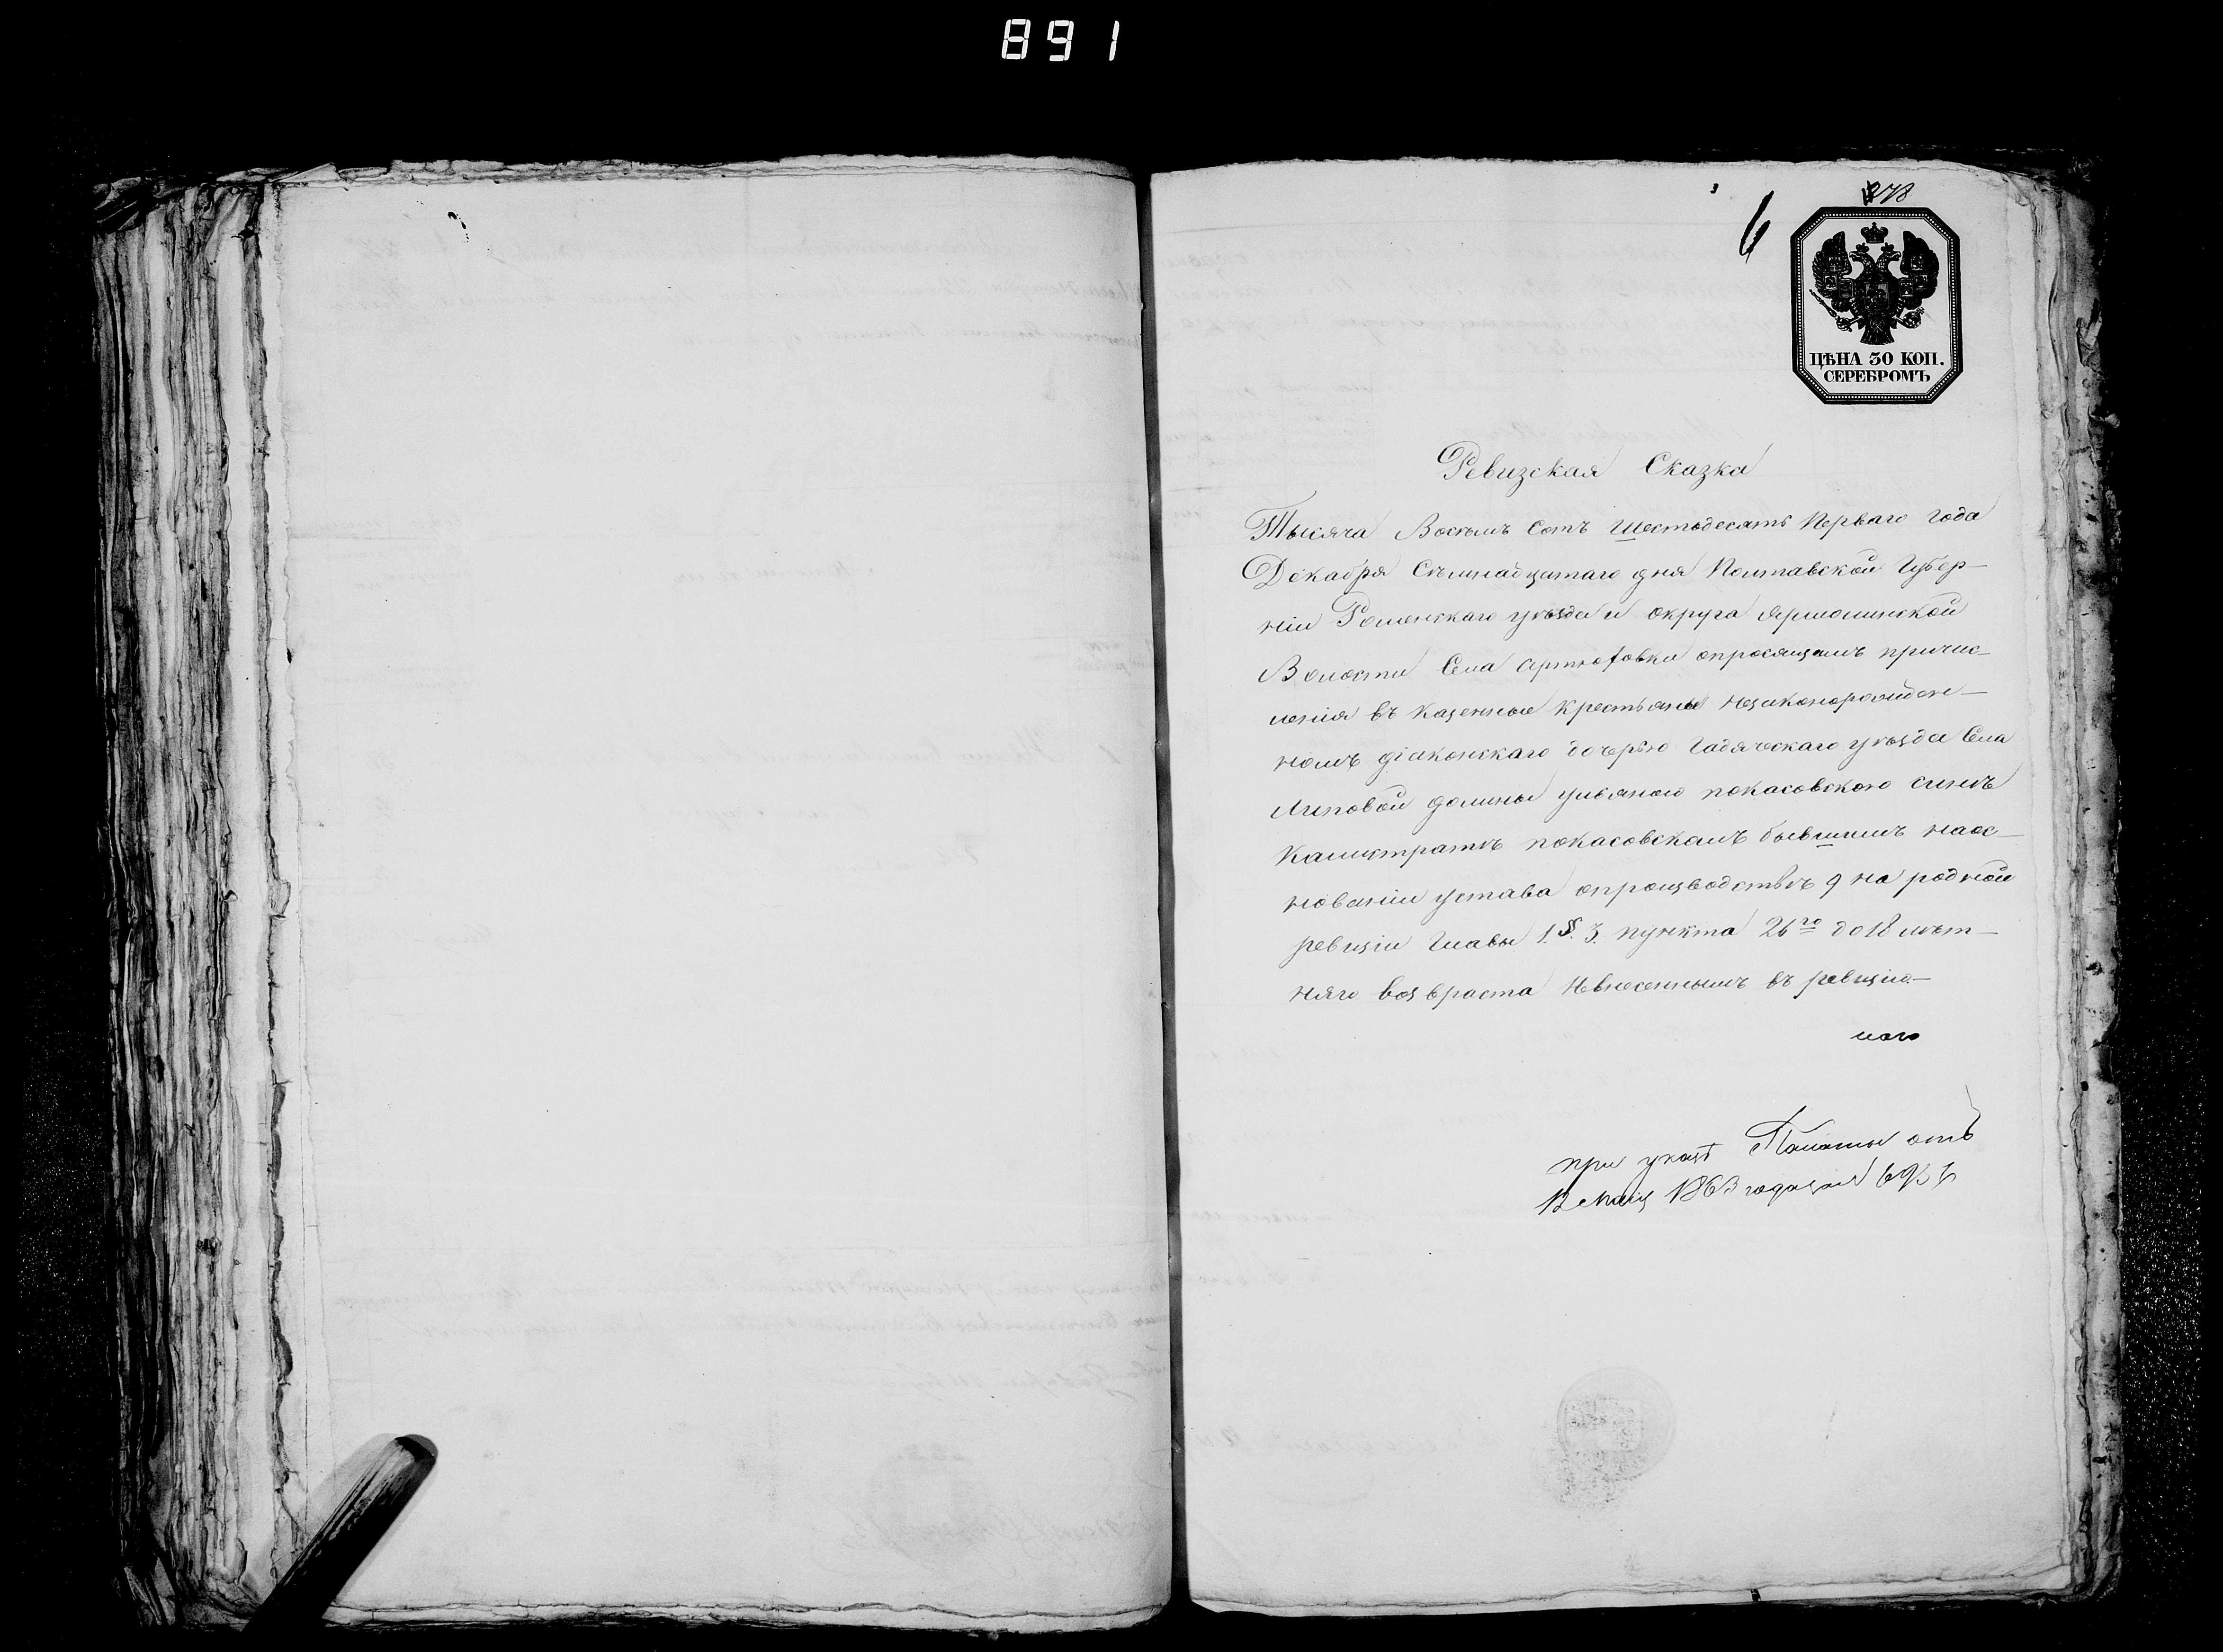 891
6
ЦѢНА 30 КОП.
СЕРЕБРОМЪ
Ревизская Сказка
Тысяча Восѣмъ Сотъ Шестьдесятъ Перваго года
Декабря Сѣмнадцатаго дня Полтавской Губер-
ніи Роменскаго уѣзда и округа Ярмолинской
Волости Села Артюховки опросящемъ причис-
ленія въ казенные крестьяны незаконорожден-
номъ діаконскаго дочерью Гадячскаго уѣзда Села
Липовой долины ульяною покасовскою сынѣ
Калистратѣ покасовскомъ бывшимъ наос-
нованіи устава опроизводствѣ 9 на родной
ревизіи Главы 1. §. 3. пункта 26го до 18 лѣт-
няго возвраста Невнесеннымъ въ ревизіо-
ною
при указѣ Палаты отъ
1863 года